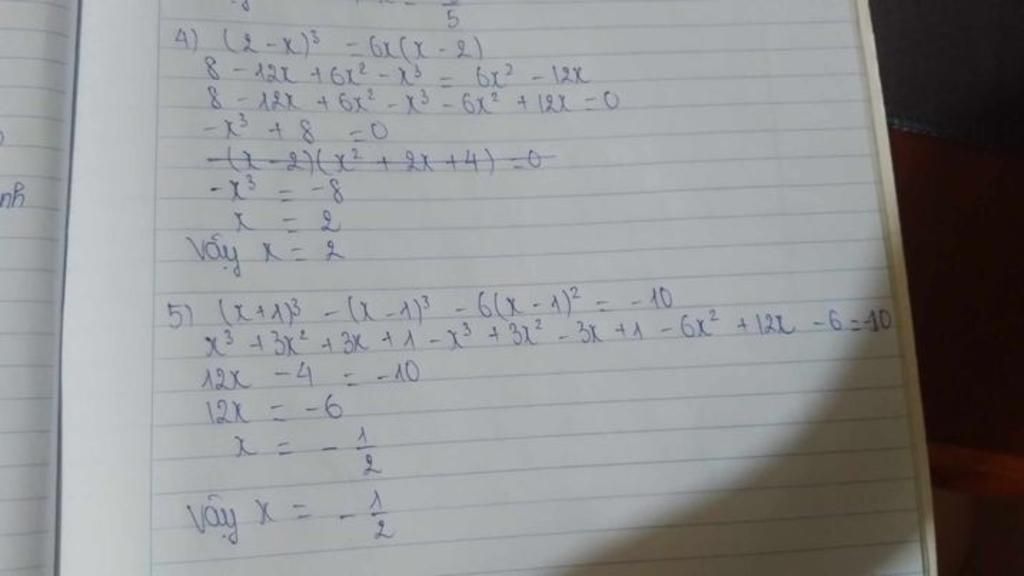 5
4) (2 - x)³ = 6x(x - 2)
8 - 12x + 6x² - x³ = 6x² - 12x
8 - 12x + 6x² - x³ - 6x² + 12x = 0
-x³ + 8 = 0
-(x - 2)(x² + 2x + 4) = 0
-x³ = -8
x = 2
Vậy x = 2
5) (x+1)³ - (x - 1)³ - 6(x - 1)² = -10
x³ + 3x² + 3x + 1 - x³ + 3x² - 3x + 1 - 6x² + 12x - 6 = -10
12x - 4 = -10
12x = -6
x = - 1/2
Vậy x = - 1/2